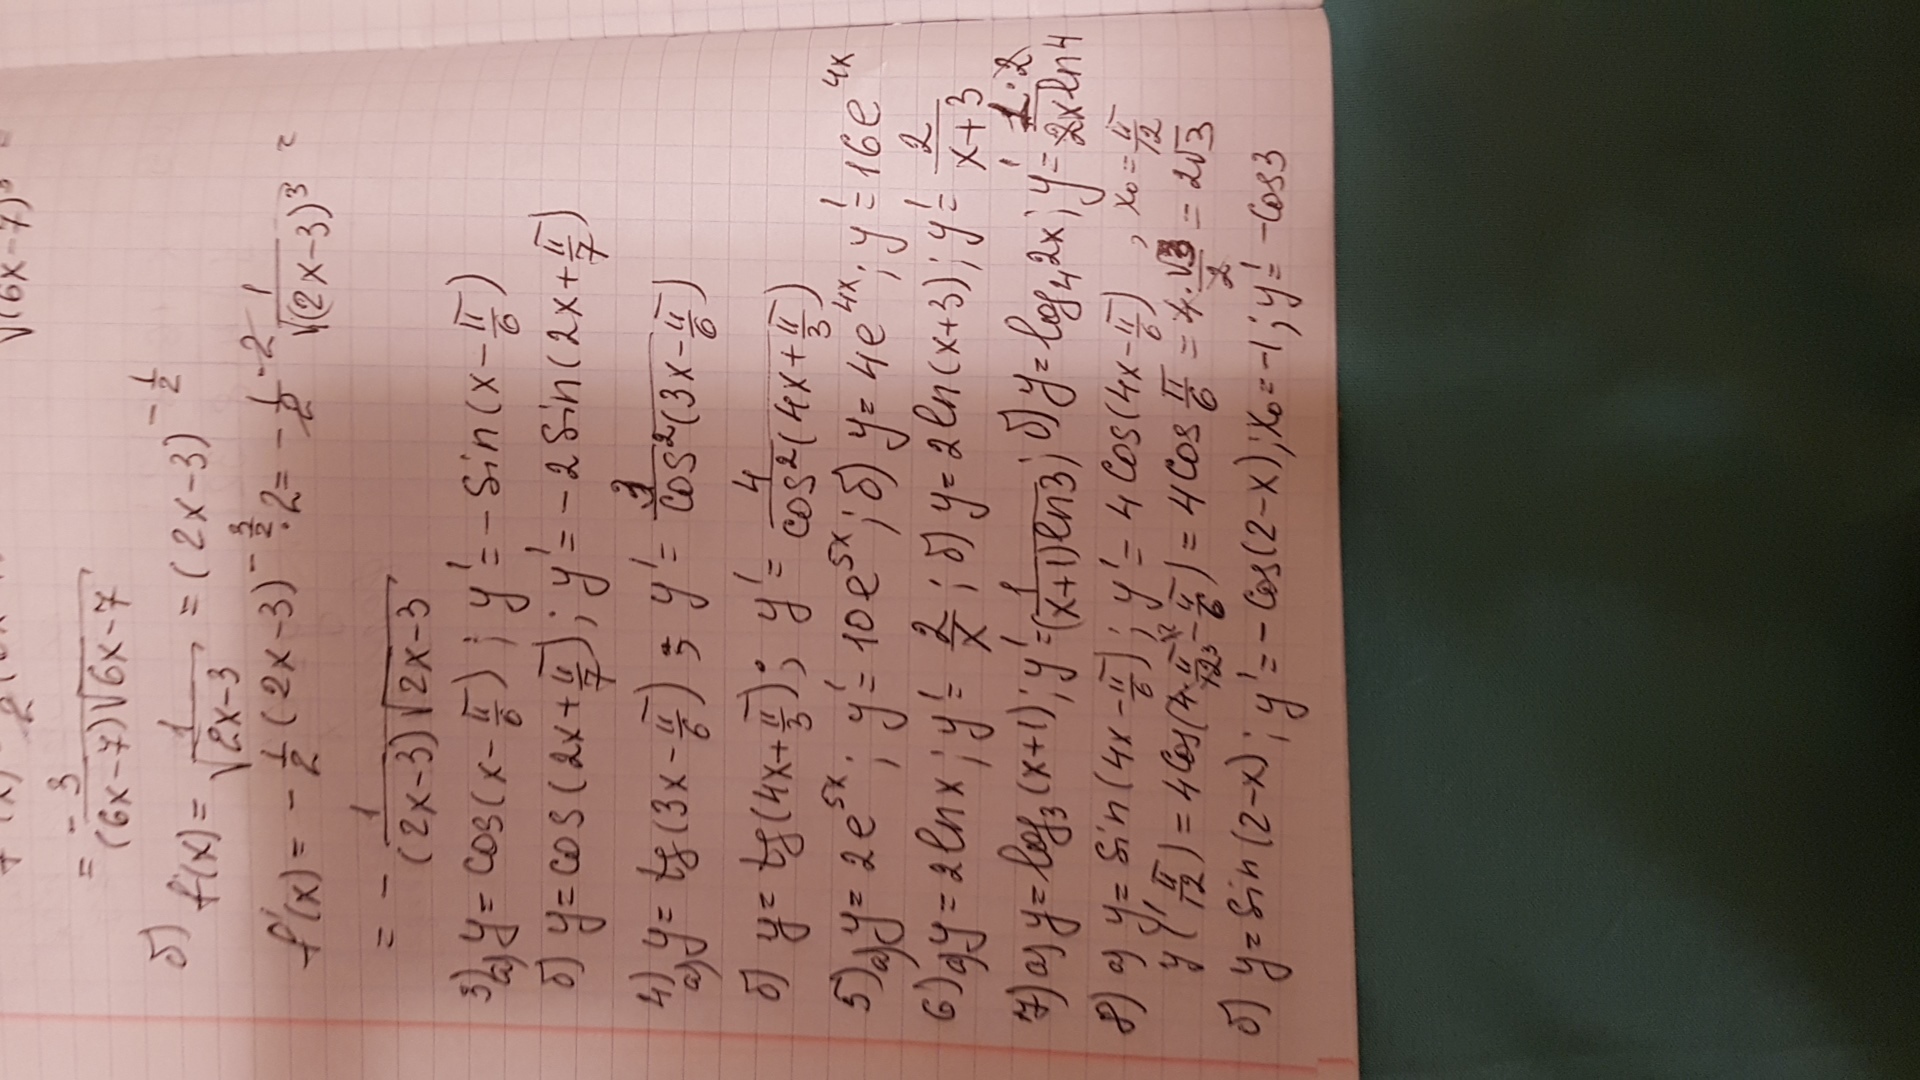 = - 3/((6x-7)√(6x-7))
б) f(x) = 1/√(2x-3) = (2x-3)^(-1/2)
f'(x) = - 1/2 (2x-3)^(-3/2) · 2 = - 1/2 · 2 1/√((2x-3)³) =
= - 1/((2x-3)√(2x-3))
3) а) y = cos(x - π/6); y' = - sin(x - π/6)
б) y = cos(2x + π/7); y' = -2 sin(2x + π/7)
4) а) y = tg(3x - π/6); y' = 3/cos²(3x - π/6)
б) y = tg(4x + π/3); y' = 4/cos²(4x + π/3)
5) а) y = 2e^(5x); y' = 10e^(5x); б) y = 4e^(4x); y' = 16e^(4x)
6) а) y = 2lnx; y' = 2/x; б) y = 2ln(x+3); y' = 2/(x+3)
7) а) y = log₃(x+1); y' = 1/((x+1)ln3); б) y = log₄2x; y' = 1·2/(2xln4)
8) а) y = sin(4x - π/6); y' = 4cos(4x - π/6), x₀ = π/12
y'(π/12) = 4cos(4·π/12 - π/6) = 4cos π/6 = 4·√3/2 = 2√3
б) y = sin(2-x); y' = -cos(2-x); x₀ = -1; y' = -cos3